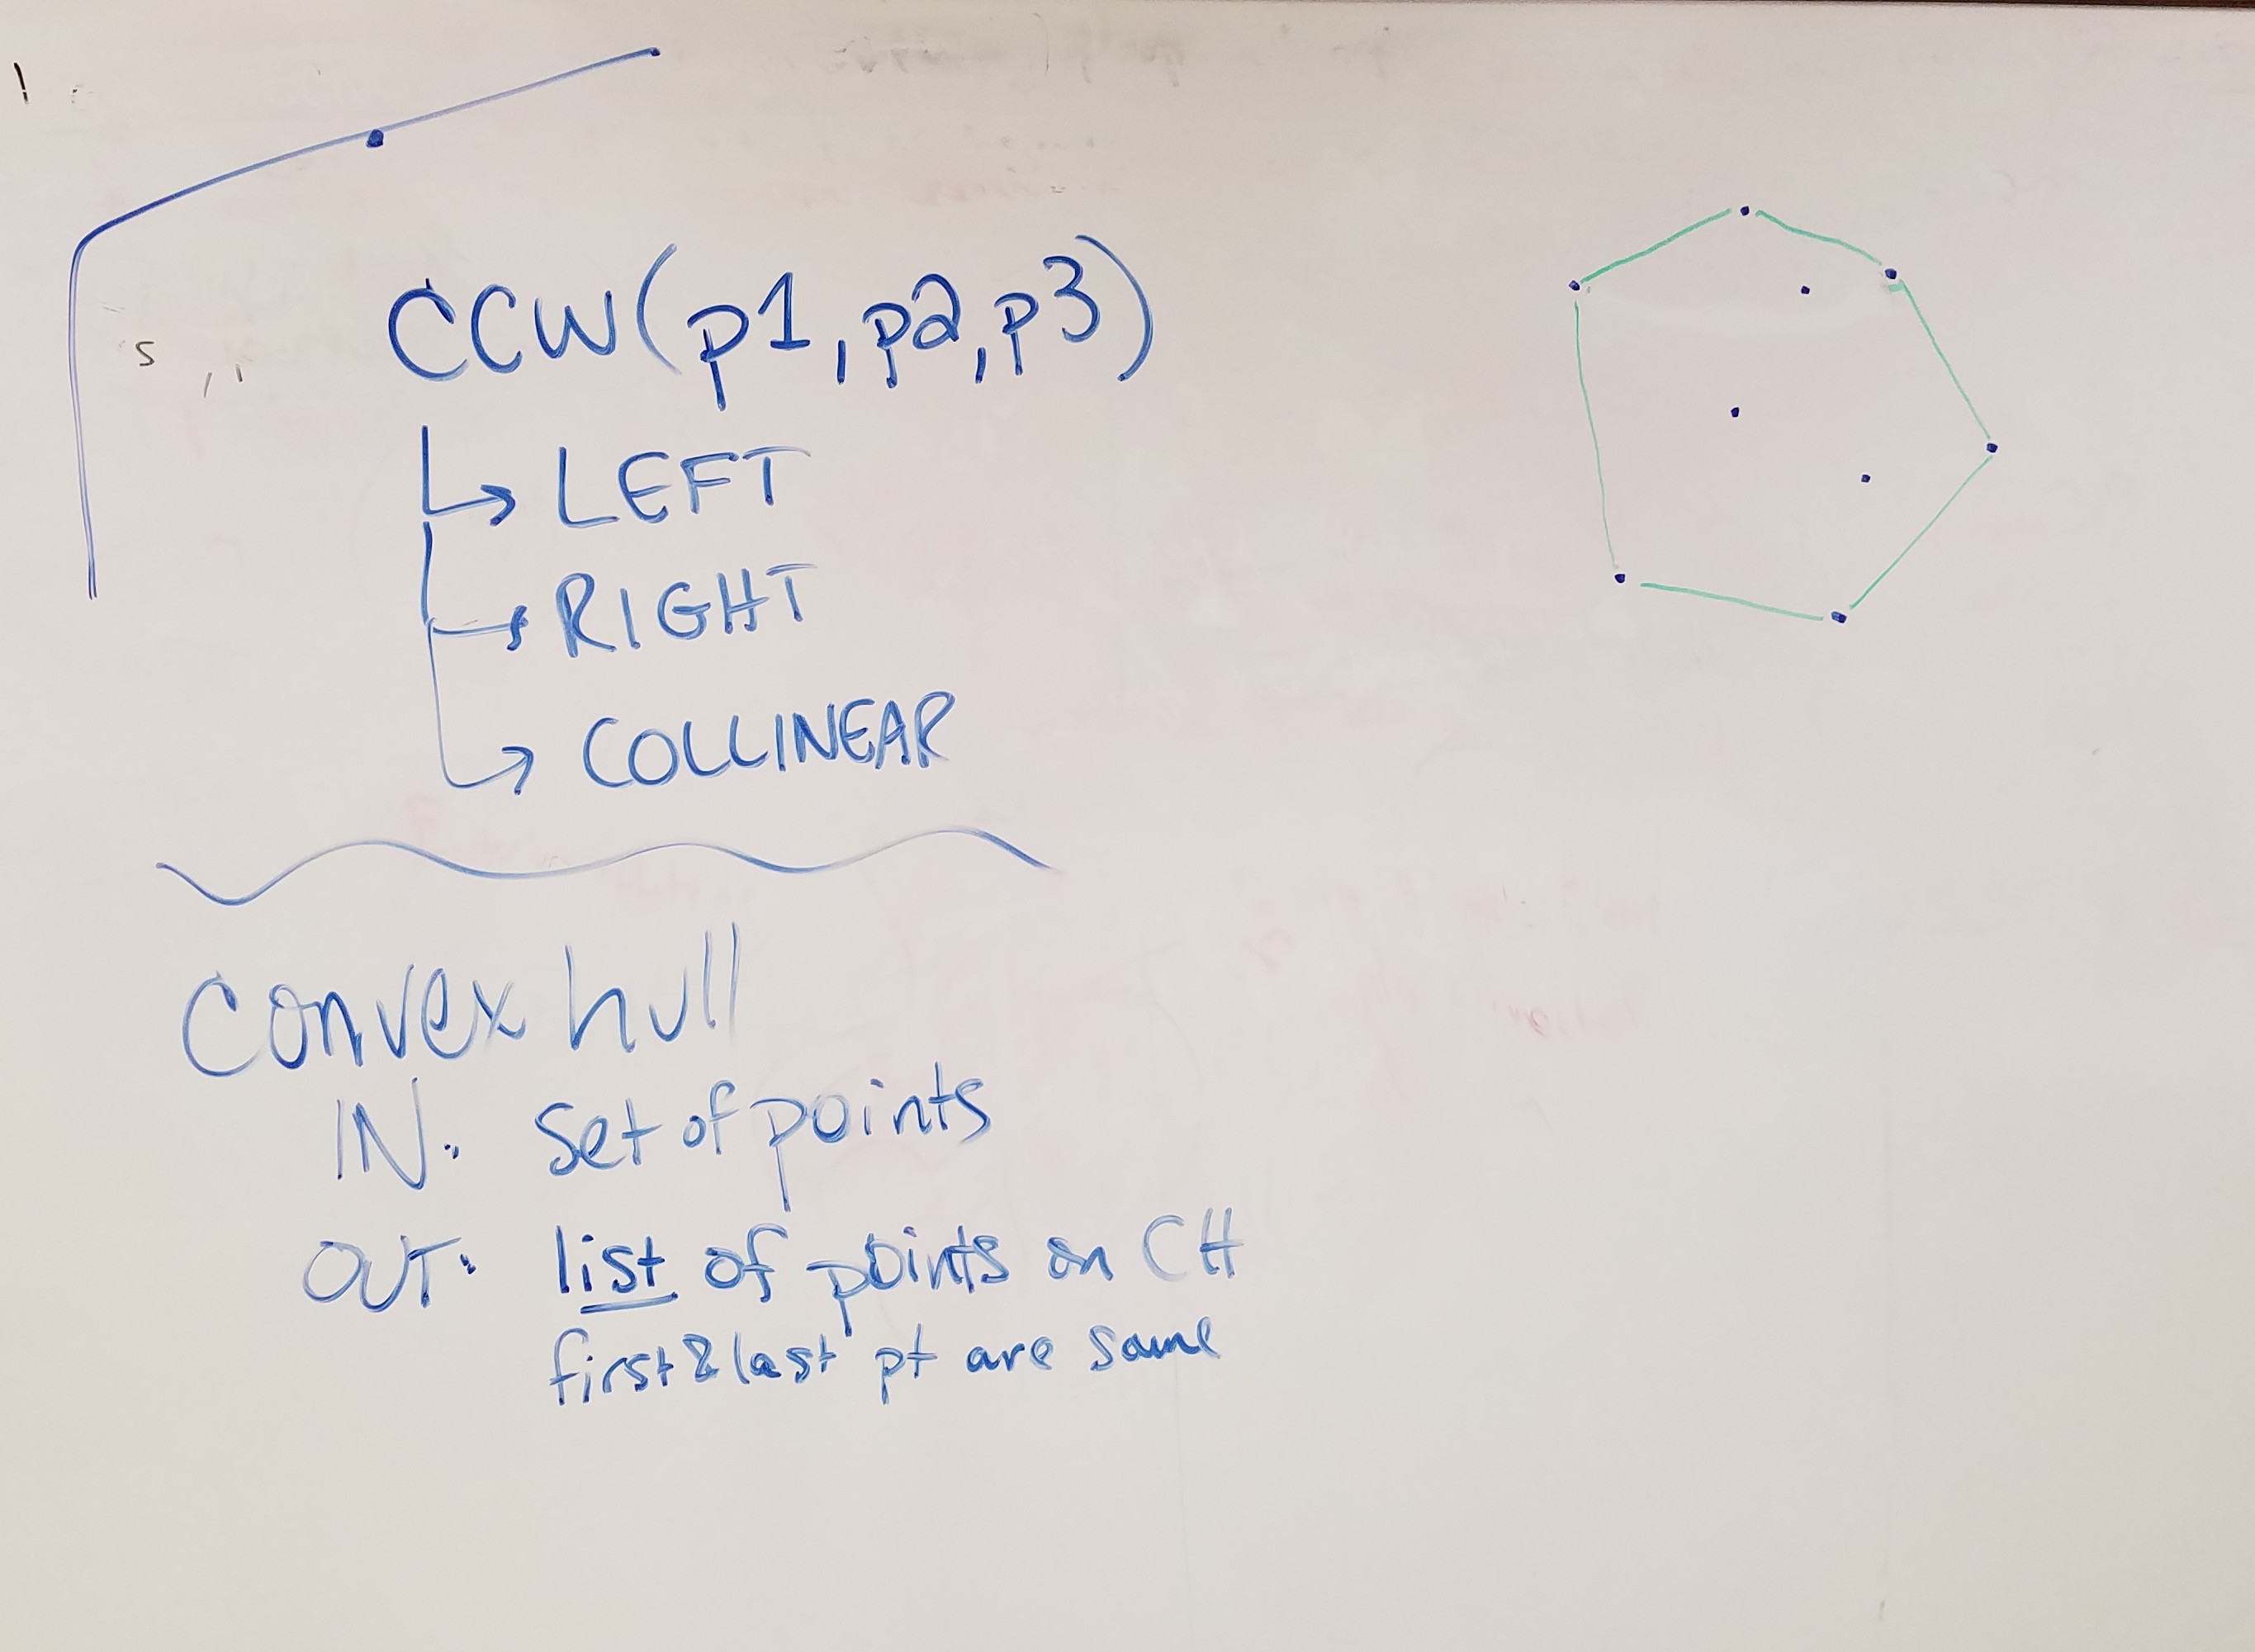 CCW(p1,p2,p3)
LEFT
RIGHT
COLLINEAR
Convex hull
IN: set of points
OUT: list of points on CH
first & last pt are same